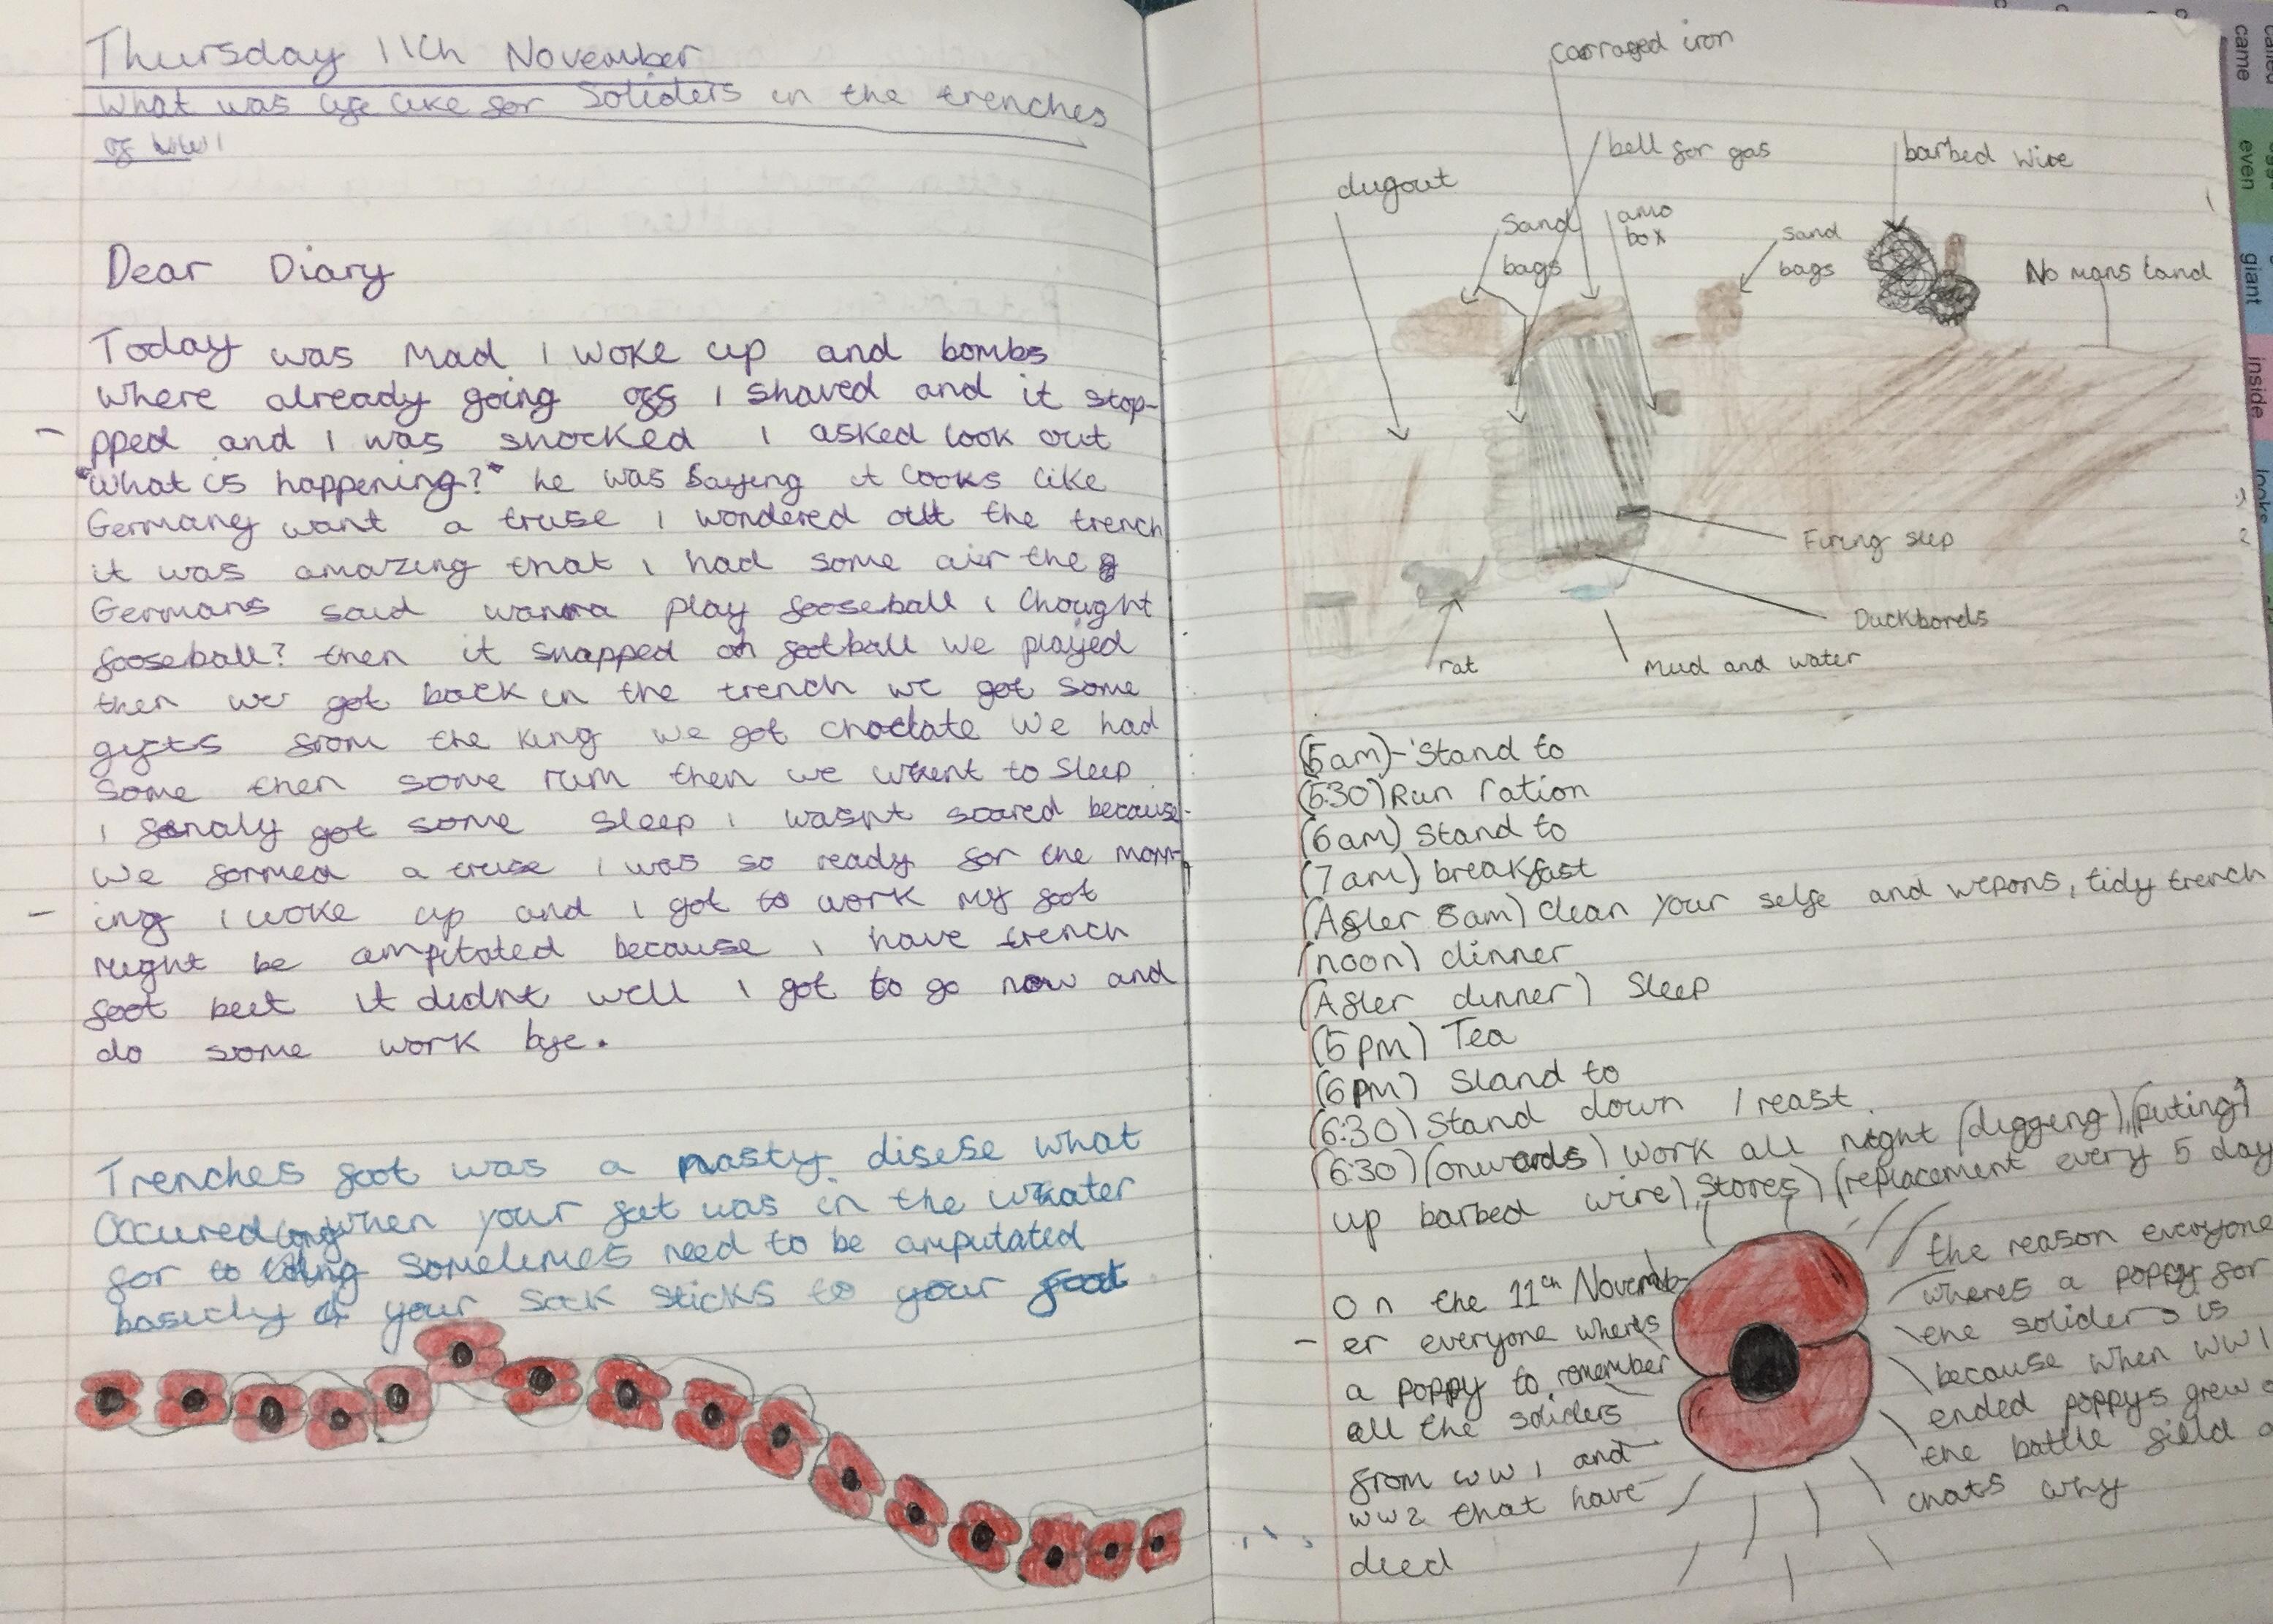 Thursday 11th November
What was life like for Soliders in the trenches
of WW1
Dear Diary
Today was Mad I woke up and bombs
where already going off I shaved and it stop-
pped and I was shocked I asked look out
"What is happening?" he was saying it looks like
Germany want a truse I wondered out the trench
it was amazing that I had some air the
Germans said wanna play fooseball I thought
fooseball? then it snapped oh football we played
then we got back in the trench we got some
gifts from the King we got choclate we had
some then some rum then we went to sleep
I finaly got some sleep I wasnt scared because
we formed a truse I was so ready for the morn-
ing I woke up and I got to work my foot
might be ampitated because I have trench
foot but it didnt well I got to go now and
do some work bye.
Trenches foot was a nasty disese what
occured when your feet was in the water
for to long sometimes need to be amputated
basicly if your sock sticks to your foot
corraged iron
bell for gas
barbed wire
dugout
Sand
bags
amo
box
sand
bags
No mans land
Firing step
Duckbords
rat
Mud and water
(5am)-Stand to
(5:30) Rum ration
(6am) Stand to
(7am) breakfast
(After 8am) Clean your selfe and wepons, tidy trench
(noon) dinner
(After dinner) Sleep
(5pm) Tea
(6pm) Stand to
(6:30) Stand down / reast
(6:30) (onwards) work all night (digging), (puting)
up barbed wire), stores) (replacement every 5 day
On the 11th Novemb-
er everyone wheres
a poppy to remember
all the soliders
from WW1 and
WW2 that have
died
the reason everyone
wheres a poppy for
the soliders is
because when WW1
ended poppys grew
the battle field
thats why
came
even
giant
inside
looke